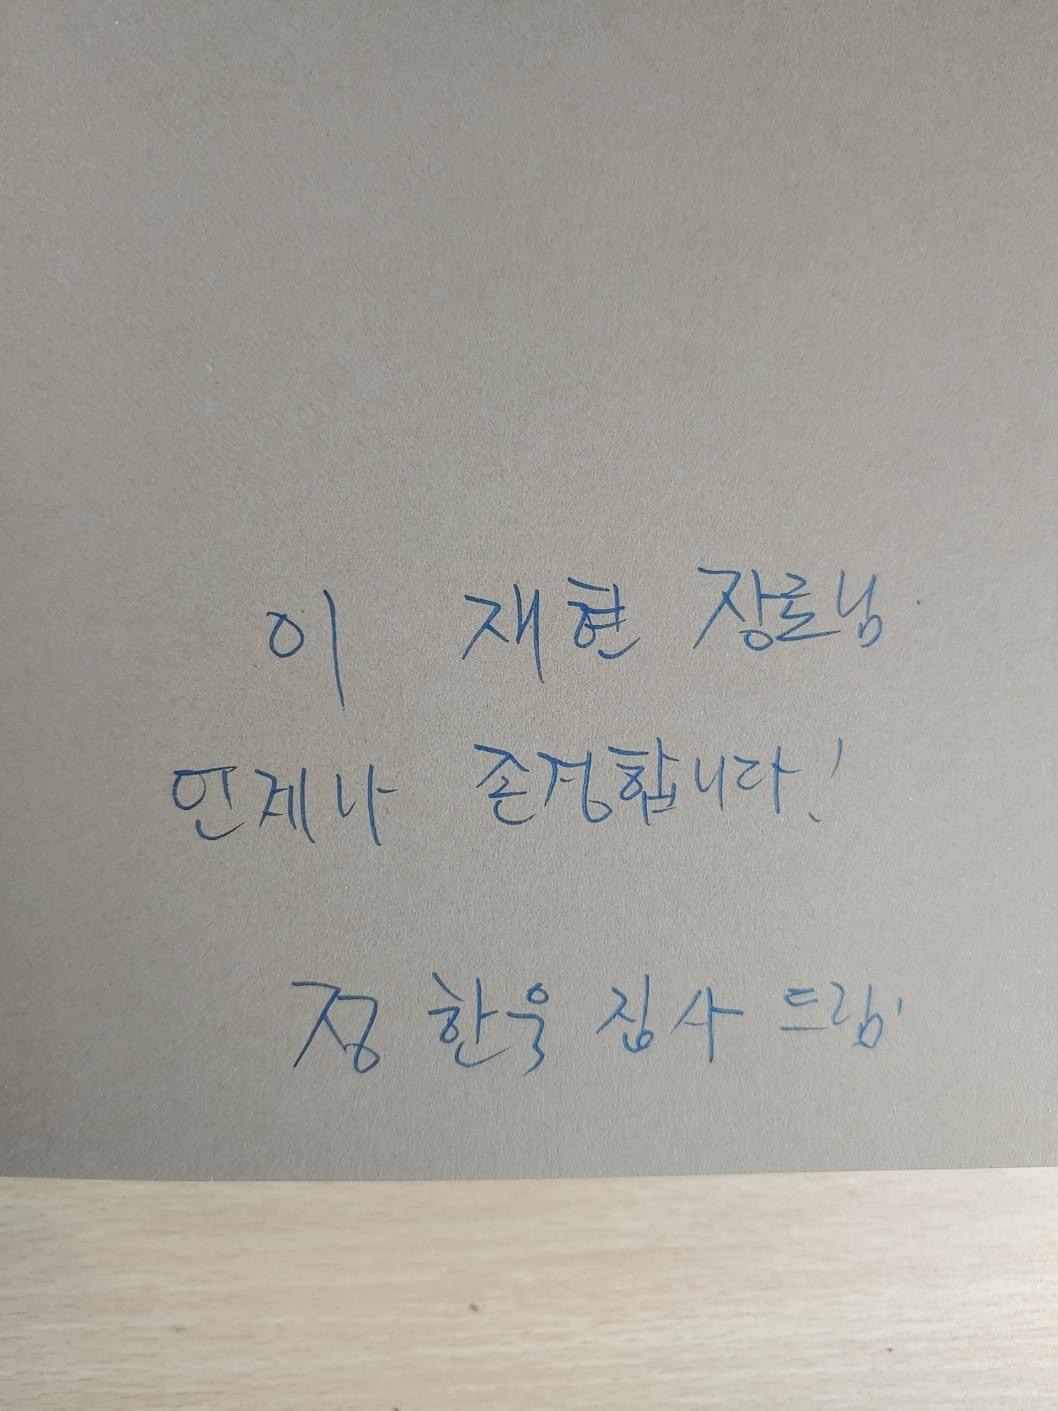 이 재현 장로님
언제나 존경합니다!
정 한욱 집사 드림